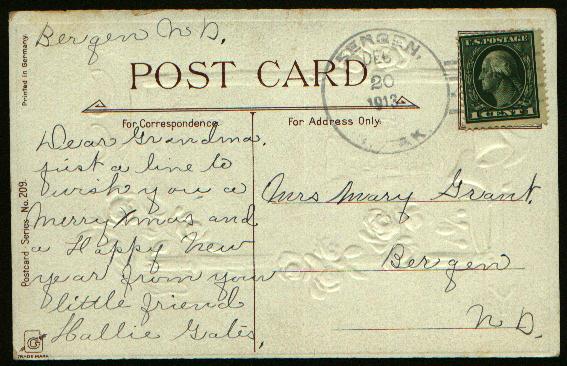 Bergen N D.
Printed in Germany
POST CARD
BERGEN,
DEC
20
1913
AK
U.S. POSTAGE
1 CENT 1
For Correspondence
For Address Only.
Dear Grandma.
just a line to
wish you a
Merry Xmas and
a Happy New
year from your
little friend
Hallie Gates.
Mrs Mary Grant.
Bergen
N D.
Postcard Series No. 209.
G
TRADE MARK